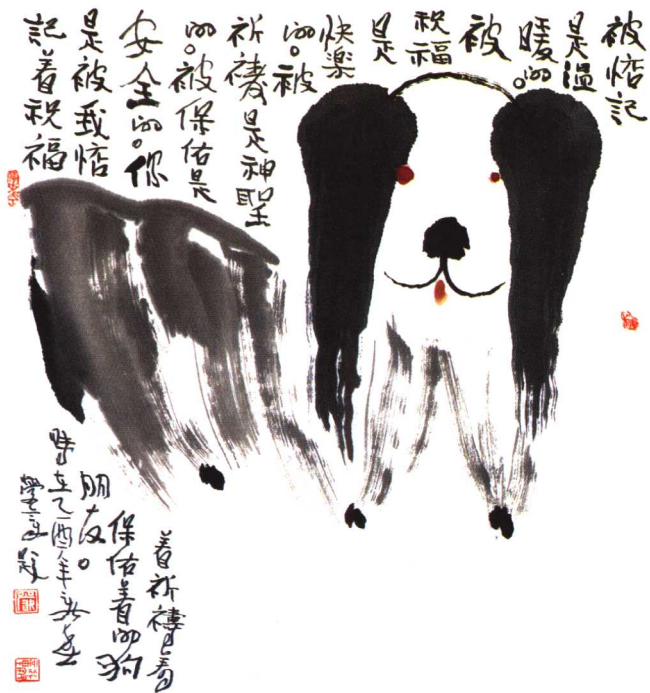 被惦記
是溫
暖的。
被
祝福
是
快樂
的。被
祈禱是神聖
的。被保佑是
安全的。你
是被我惦
記着祝福
着祈禱着
保佑着的狗
朋友。
時在乙酉年
題